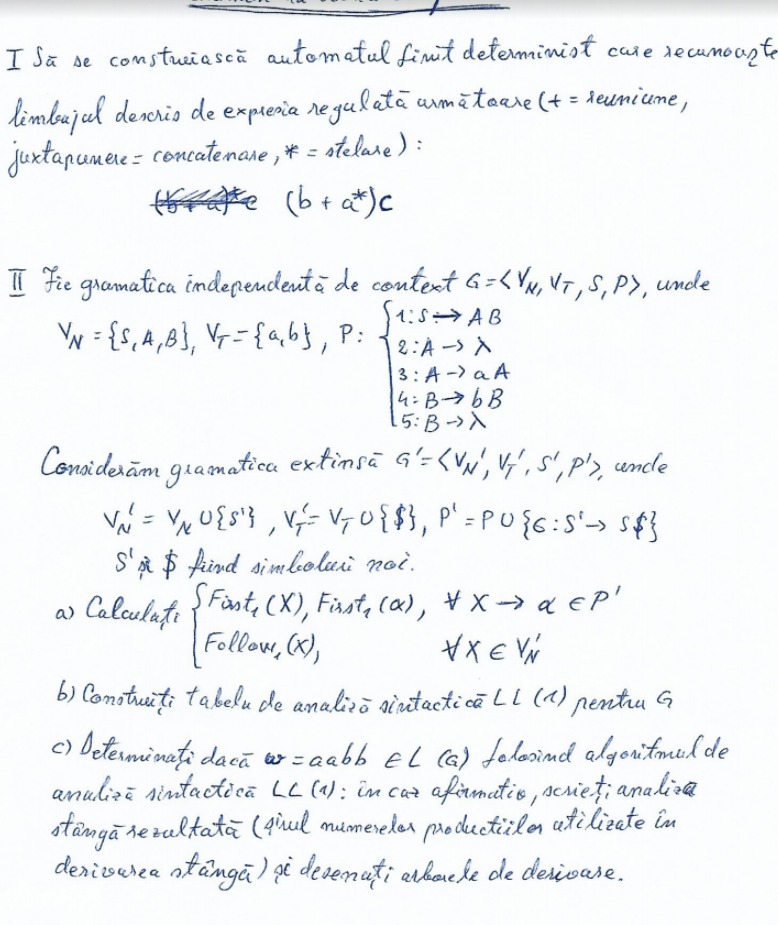 I Să se construiască automatul finit determinist care recunoaște
limbajul descris de expresia regulată următoare (+ = reuniune,
juxtapunere = concatenare, * = stelare) :
(b + a*)c
II Fie gramatica independentă de context G = <V_N, V_T, S, P>, unde
V_N = {S, A, B}, V_T = {a, b}, P: { 1: S → AB
2: A → λ
3: A → aA
4: B → bB
5: B → λ
Considerăm gramatica extinsă G' = <V_N', V_T', S', P'>, unde
V_N' = V_N ∪ {S'}, V_T' = V_T ∪ {$}, P' = P ∪ {6: S' → S$}
S' și $ fiind simboluri noi.
a) Calculați { First₁(X), First₁(α), ∀ X → α ∈ P'
Follow₁(X), ∀ X ∈ V_N'
b) Construiți tabela de analiză sintactică LL(1) pentru G
c) Determinați dacă w = aabb ∈ L(G) folosind algoritmul de
analiză sintactică LL(1): în caz afirmativ, scrieți analiza
stângă rezultată (șirul numerelor producțiilor utilizate în
derivarea stângă) și desenați arborele de derivare.